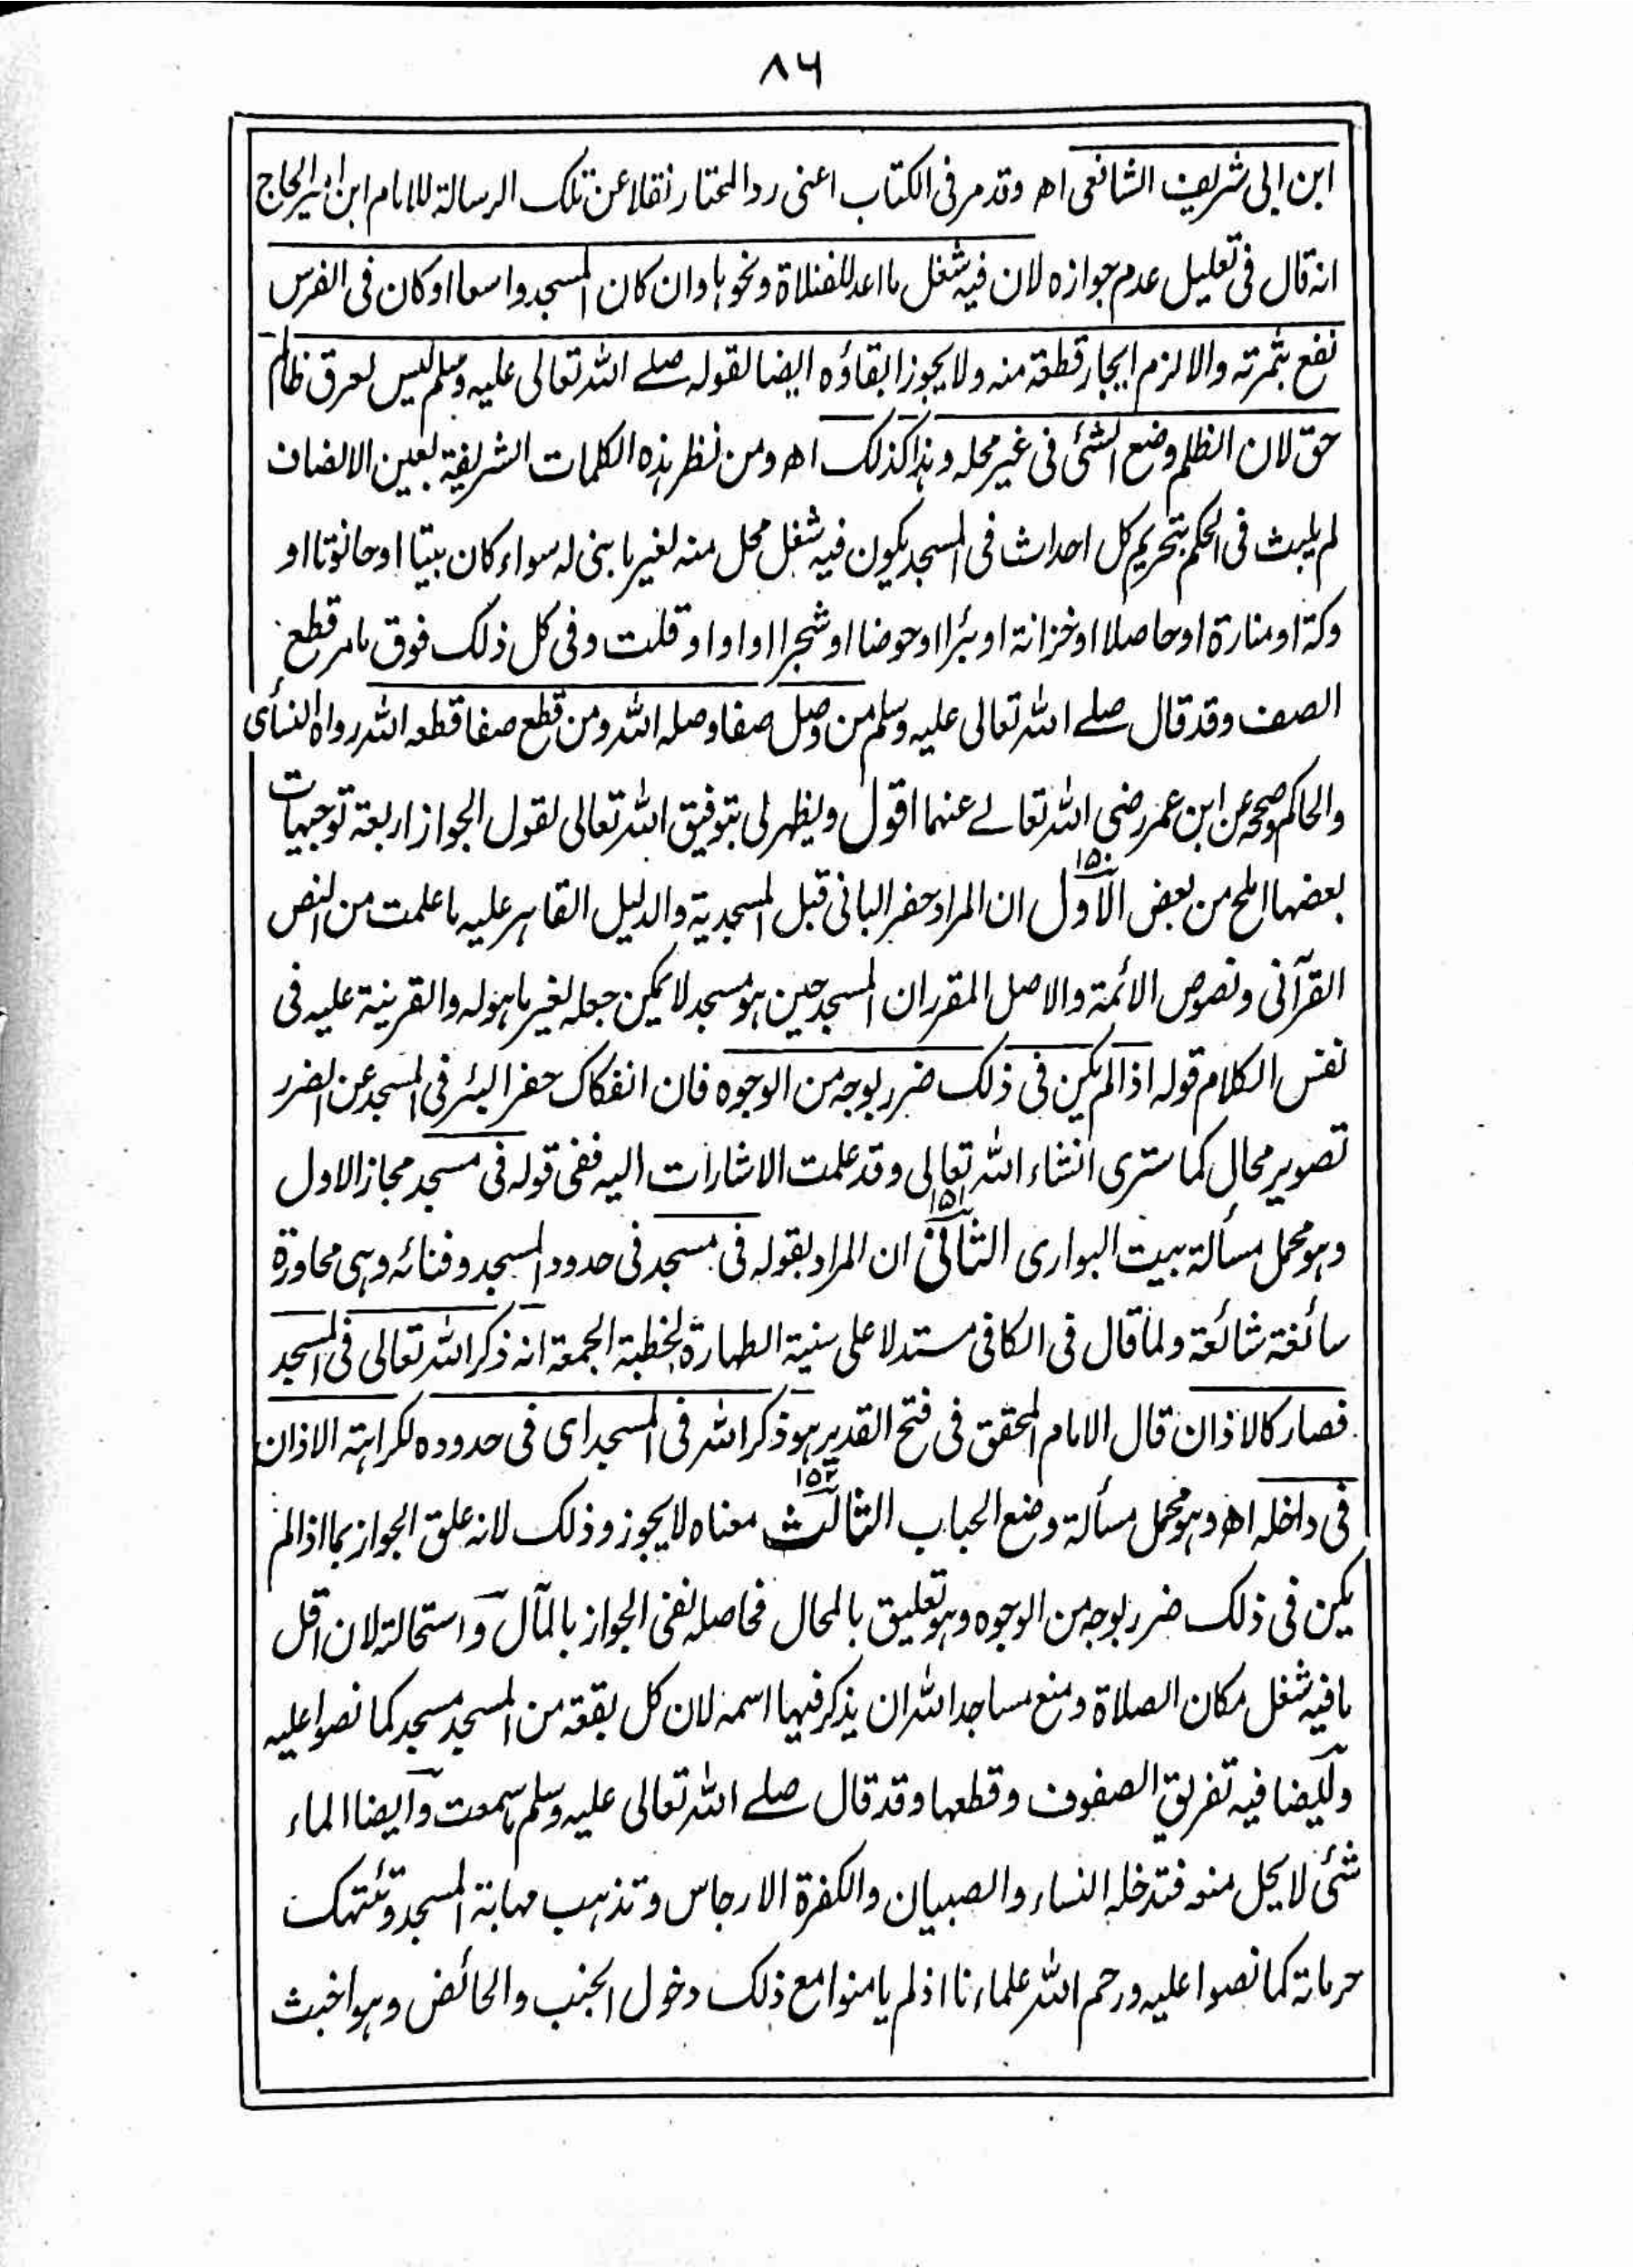 ٨٦
ابن ابی شریف الشافعی اھ وقد مر فی الکتاب اعنی رد المحتار نقلا عن تلک الرسالة للامام ابن امیر الحاج
انہ قال فی تعلیل عدم جوازہ لان فیہ شغل ما اعد للصلاة ونحوہا وان کان المسجد واسعا او کان فی الغرس
نفع بثمرتہ والا لزم ایجار قطعة منہ ولا یجوز ابقاؤہ ایضا لقولہ صلے اللہ تعالی علیہ وسلم لیس لعرق ظالم
حق لان الظلم وضع الشئ فی غیر محلہ وہذا کذلک اھ ومن نظر ہذہ الکلمات الشریفة بعین الانصاف
لم یلبث فی الحکم بتحریم کل احداث فی المسجد یکون فیہ شغل محل منہ لغیر ما بنی لہ سواء کان بیتا او حانوتا او
دکة او منارة او حاصلا او خزانة او بئرا او حوضا او شجرا او او او قلت وفی کل ذلک فوق ما مر قطع
الصف وقد قال صلے اللہ تعالی علیہ وسلم من وصل صفا وصلہ اللہ ومن قطع صفا قطعہ اللہ رواہ النسائی
والحاکم وصحہ عن ابن عمر رضی اللہ تعالے عنہما اقول ویظہر لی بتوفیق اللہ تعالی لقول الجواز اربعة توجیہات
بعضہا املح من بعض الاول ١٥٠ ان المراد حفر البانی قبل المسجدیة والدلیل القاہر علیہ ما علمت من النص
القرآنی ونصوص الائمة والاصل المقرر ان المسجد حین ہو مسجد لا یمکن جعلہ لغیر ما ہو لہ والقرینة علیہ فی
نفس الکلام قولہ اذا لم یکن فی ذلک ضرر بوجہ من الوجوہ فان انفکاک حفر البئر فی المسجد عن الضرر
تصویر محال کما ستری انشاء اللہ تعالی وقد علمت الاشارات الیہ ففی قولہ فی مسجد مجاز الاول
وہو محمل مسألة بیت البواری الثانی ١٥١ ان المراد بقولہ فی مسجد فی حدود المسجد وفنائہ وہی محاورة
سائغة شائعة ولما قال فی الکافی مستدلا علی سنیة الطہارة لخطبة الجمعة انہ ذکر اللہ تعالی فی المسجد
فصار کالاذان قال الامام المحقق فی فتح القدیر ہو ذکر اللہ فی المسجد ای فی حدودہ لکراہتہ الاذان
فی داخلہ اھ وہو محمل مسألة وضع الحباب الثالث ١٥٢ معناہ لا یجوز وذلک لانہ علق الجواز بما اذا لم
یکن فی ذلک ضرر بوجہ من الوجوہ وہو تعلیق بالمحال فحاصلہ نفی الجواز بالمآل و استحالتہ لان اقل
ما فیہ شغل مکان الصلاة ومنع مساجد اللہ ان یذکر فیہا اسمہ لان کل بقعة من المسجد مسجد کما نصوا علیہ
وایضا فیہ تفریق الصفوف وقطعہا وقد قال صلے اللہ تعالی علیہ وسلم ما سمعت وایضا الماء
شئ لا یحل منعہ فتدخلہ النساء والصبیان والکفرة الارجاس وتذہب مہابة المسجد وتنتہک
حرماتہ کما نصوا علیہ ورحم اللہ علماءنا اذ لم یامنوا مع ذلک دخول الجنب والحائض وہو اخبث